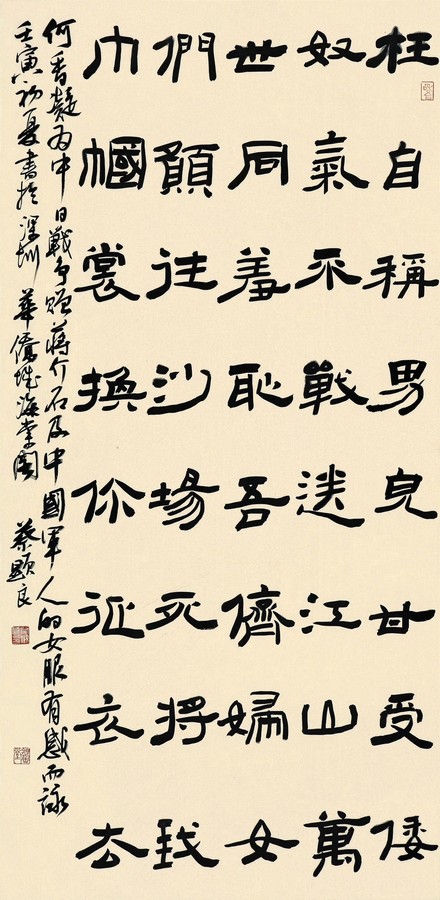 枉自稱男兒甘受倭
奴氣不戰送江山萬
世同羞恥吾儕婦女
們願往沙場死將我
巾幗裳換你征衣去
何香凝為中日戰爭贈蔣介石及中國軍人的女服有感而詠
壬寅初夏書於深圳 華僑城海 蔡顯良